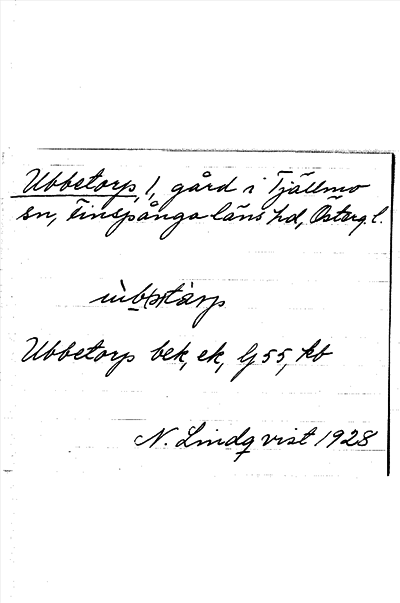 Ubbetorp, 1, gård i Tjällmo
sn, Finspånga läns hd, Österg. l.
Ubbetorp bek, ek, Gj 55, kb
N. Lindqvist 1928